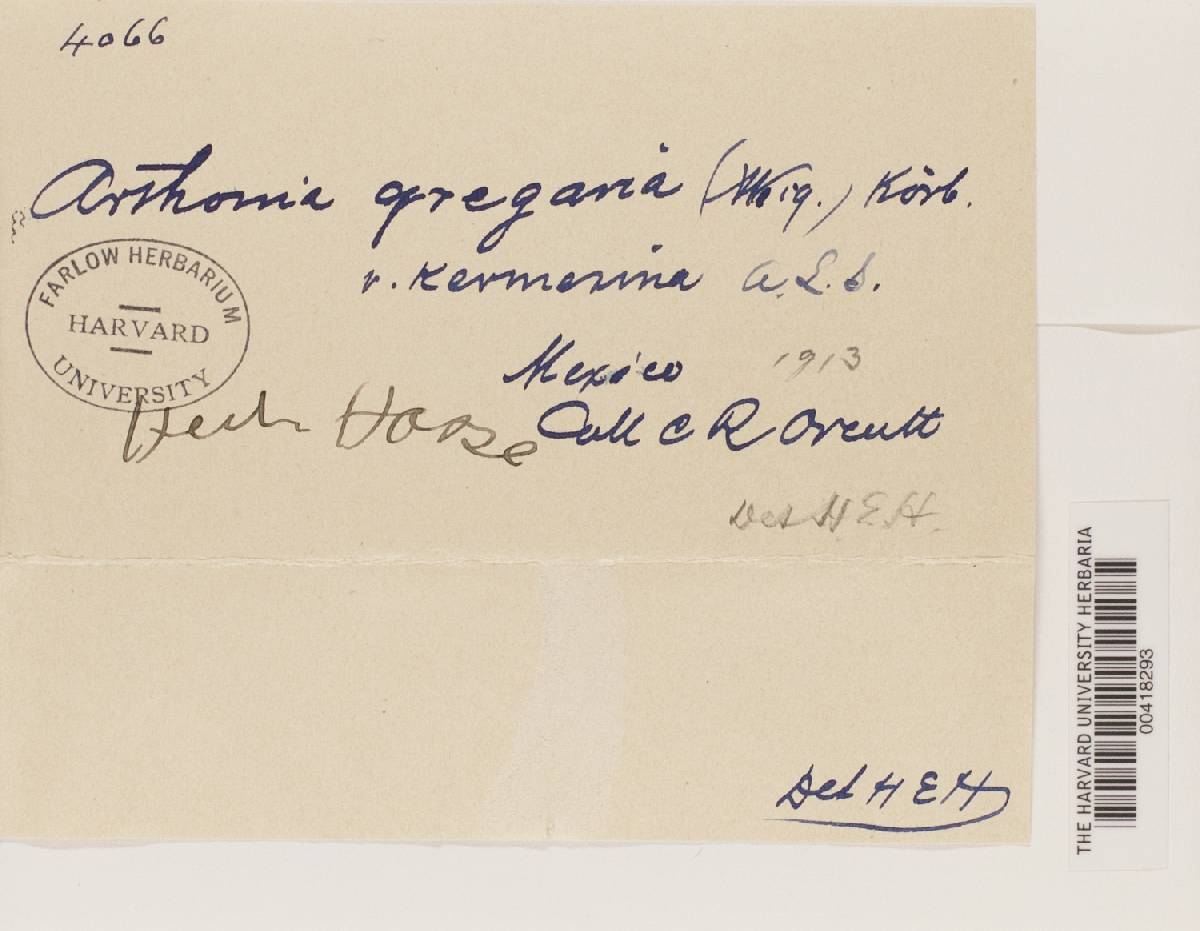 4066
Arthonia gregaria (Weig.) Körb.
v. kermesina A.L.S.
FARLOW HERBARIUM
HARVARD
UNIVERSITY
Mexico 1913
Herb Hasse Coll C R Orcutt
Det H.E.H.
Det H E H
THE HARVARD UNIVERSITY HERBARIA
00418293